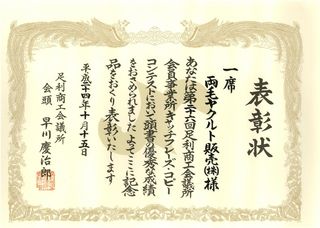 表彰状
一席
両毛ヤクルト販売㈱様
あなたは第二十一回足利商工会議所
会員事業所キャッチフレーズ・コピー
コンテストにおいて頭書の優秀な成績
をおさめられました よってここに記念
品をおくり表彰いたします
平成二十四年十月十五日
足利商工会議所
会頭 早川慶治郎